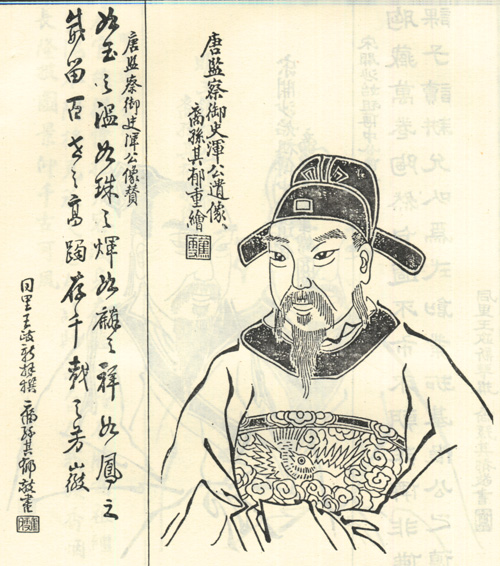 唐監察御史渾公遺像、
裔孫其郁重繪
唐監察御史渾公像贊
如玉之溫如珠之煇如麟之祥如鳳之
儀留百世之高躅存千載之芳徽
同里王政新拜撰 裔孫其郁敬書